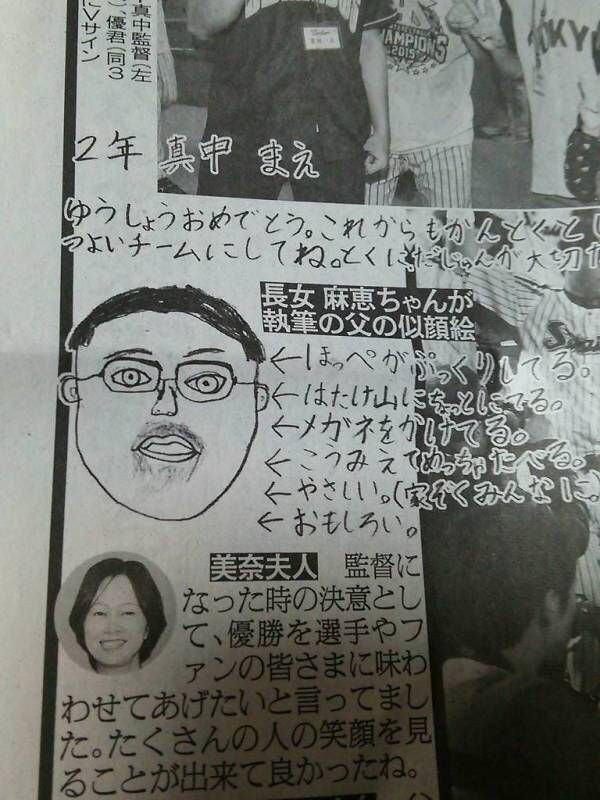 真中監督(左
、優君(同3
にVサイン
CHAMPIONS
2015
TOKYO
2年 真中 まえ
ゆうしょうおめでとう。これからもかんとくとし
つよいチームにしてね。とくに、だじゅんが大切だ
長女 麻恵ちゃんが
執筆の父の似顔絵
←ほっぺがぷっくりしてる。
←はたけ山にちょっとにてる。
←メガネをかけてる。
←こうみえてめっちゃたべる。
←やさしい。(家ぞくみんなに。
←おもしろい。
美奈夫人 監督に
なった時の決意とし
て、優勝を選手やフ
ァンの皆さまに味わ
わせてあげたいと言ってまし
た。たくさんの人の笑顔を見
ることが出来て良かったね。